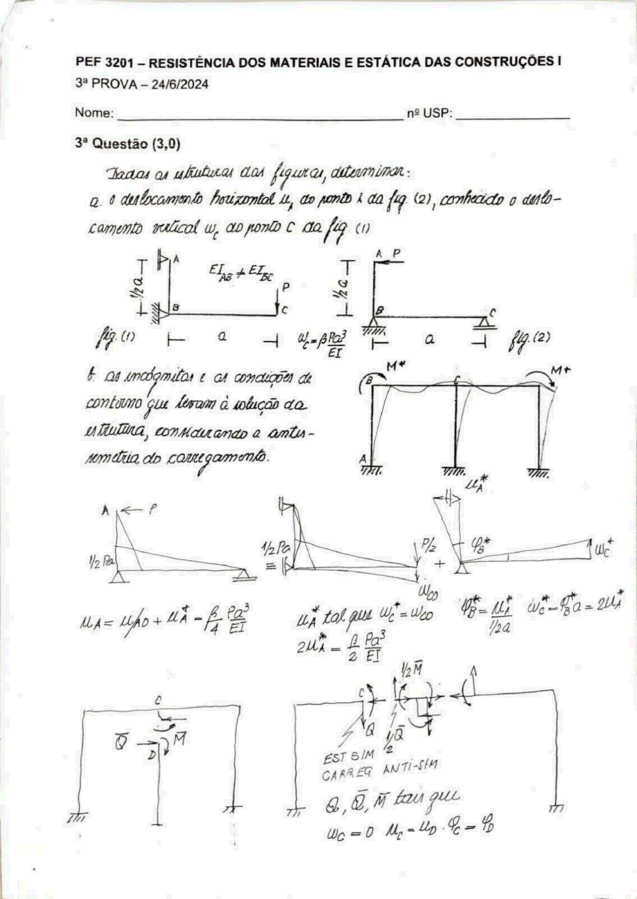 PEF 3201 – RESISTÊNCIA DOS MATERIAIS E ESTÁTICA DAS CONSTRUÇÕES I
3ª PROVA – 24/6/2024
Nome: nº USP:
3ª Questão (3,0)
Dadas as estruturas das figuras, determinar:
a. o deslocamento horizontal u_A do ponto A da fig. (2), conhecido o deslo-
camento vertical w_C do ponto C da fig (1)
A
EI_AB ≠ EI_BC
P
1/2 a
B
C
fig. (1)
a
w_C = β Pa³/EI
A P
1/2 a
B
C
a
fig. (2)
b. as incógnitas e as condições de
contorno que levam à solução da
estrutura, considerando a antis-
simetria do carregamento.
M*
M*
B
C
A
A
P
1/2 Pa
≡
1/2 Pa
P/2
w_C0
+
u_A*
φ_B*
w_C*
u_A = u_A0 + u_A* = β/4 Pa³/EI
u_A* tal que w_C* = w_C0
2u_A* = β/2 Pa³/EI
φ_B* = u_A*/(1/2 a)
w_C* = φ_B* a = 2u_A*
C
Q̄
D
M̄
C
Q
1/2 M̄
1/2 Q̄
EST SIM
CARREG ANTI-SIM
Q, Q̄, M̄ tais que
w_C = 0 u_C = u_D . φ_C = φ_D